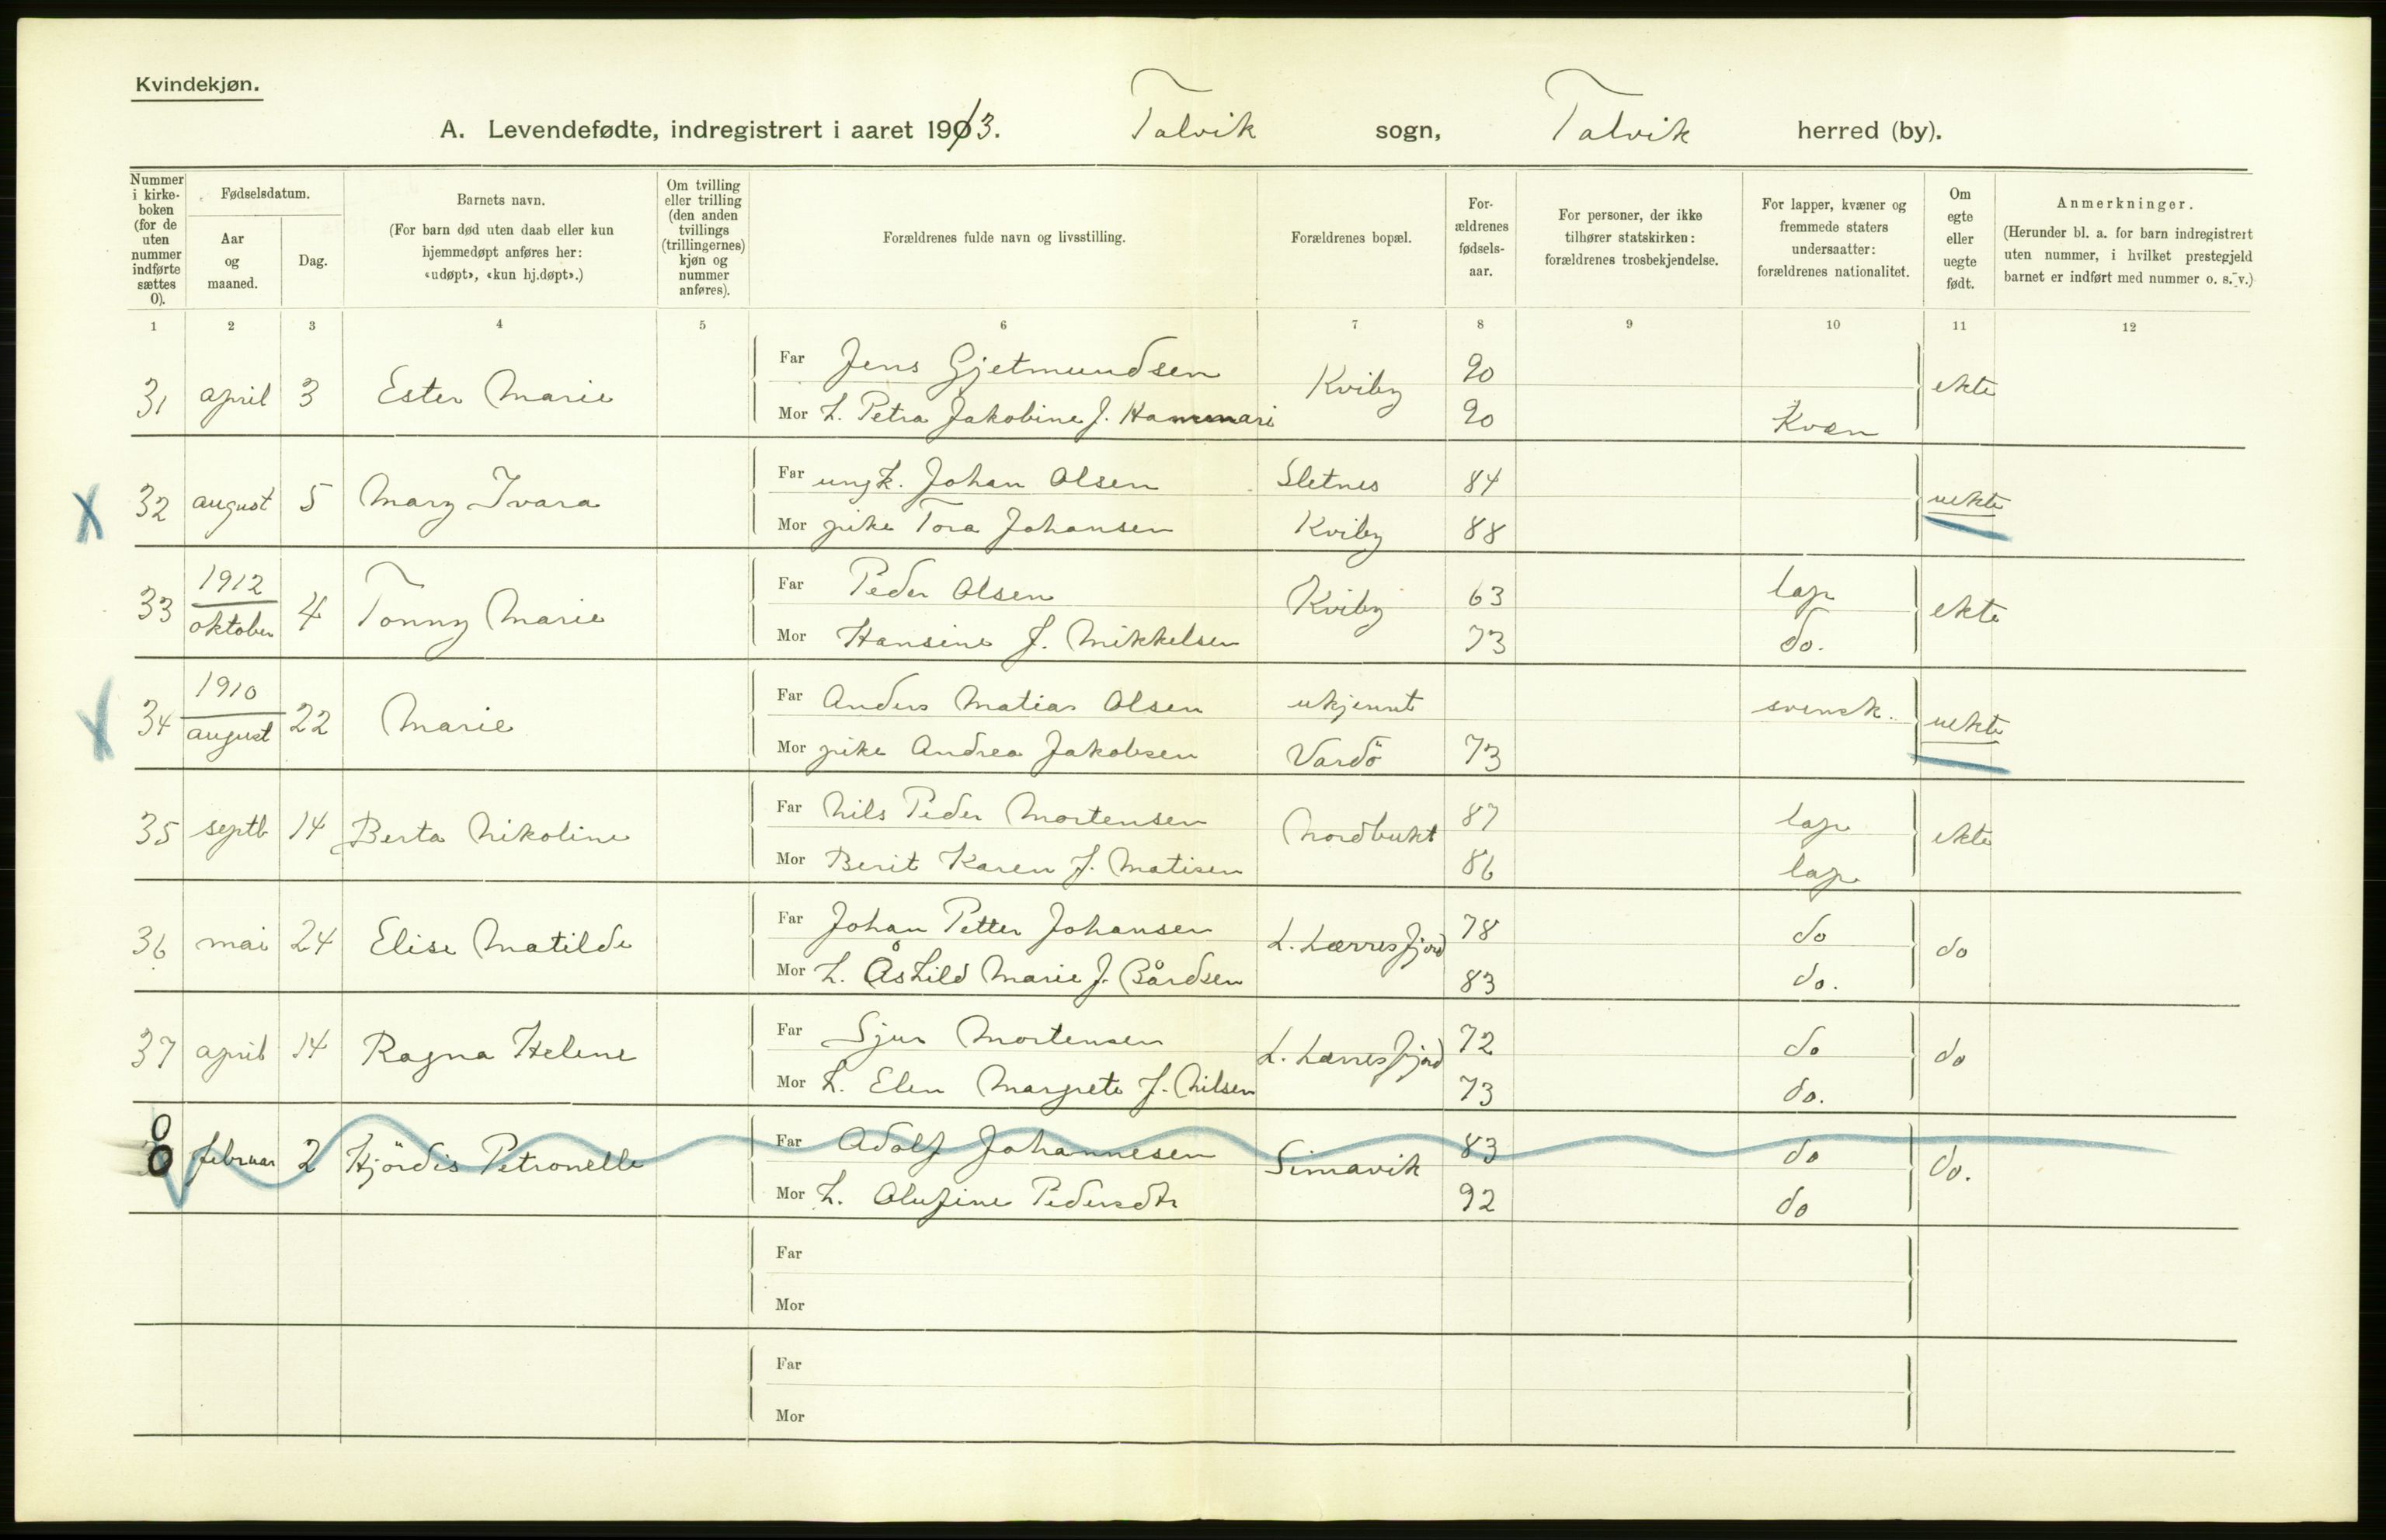 Kvindekjøn.
A. Levendefødte, indregistrert i aaret 1913. Talvik sogn, Talvik herred (by).
Nummer i kirke- boken (for de uten nummer indførte sættes 0).
Fødselsdatum.
Aar og maaned.
Dag.
Barnets navn.
(For barn død uten daab eller kun hjemmedøpt anføres her: «udøpt», «kun hj.døpt».)
Om tvilling eller trilling (den anden tvillings (trillingernes) kjøn og nummer anføres).
Forældrenes fulde navn og livsstilling.
Forældrenes bopæl.
For- ældrenes fødsels- aar.
For personer, der ikke tilhører statskirken: forældrenes trosbekjendelse.
For lapper, kvæner og fremmede staters undersaatter: forældrenes nationalitet.
Om egte eller uegte født.
Anmerkninger.
(Herunder bl. a. for barn indregistrert uten nummer, i hvilket prestegjeld barnet er indført med nummer o. s. v.)
1 2 3 4 5 6 7 8 9 10 11 12
31 april 3 Ester Marie Far Jens Gjetmundsen Kviby 90 ekte
Mor L. Petra Jakobine f. Hammari 90 Kvæn
X 32 august 5 Mary Ivara Far ungk. Johan Olsen Sletnes 84 uekte
Mor pike Tora Johansen Kviby 88
33 1912 oktober 4 Tonny Marie Far Peder Olsen Kviby 63 lap ekte
Mor Hansine f. Mikkelsen 73 do.
X 34 1910 august 22 Marie Far Anders Matias Olsen ukjennt svensk. uekte
Mor pike Andrea Jakobsen Vardö 73
35 septb 14 Berta Nikoline Far Nils Peder Mortensen Nordbukt 87 lap ekte
Mor Berit Karen f. Matisen 86 lap
36 mai 24 Elise Matilde Far Johan Petter Johansen L. Lærresfjord 78 do do
Mor L. Åshild Marie f. Bårdsen 83 do.
37 april 14 Ragna Helene Far Sjur Mortensen L. Lærresfjord 72 do do
Mor L. Elen Margrete f. Nilsen 73 do.
0 februar 2 Hjördis Petronelle Far Adolf Johannesen Simavik 83 do do.
Mor L. Olufine Pedersdtr 92 do
Far
Mor
Far
Mor